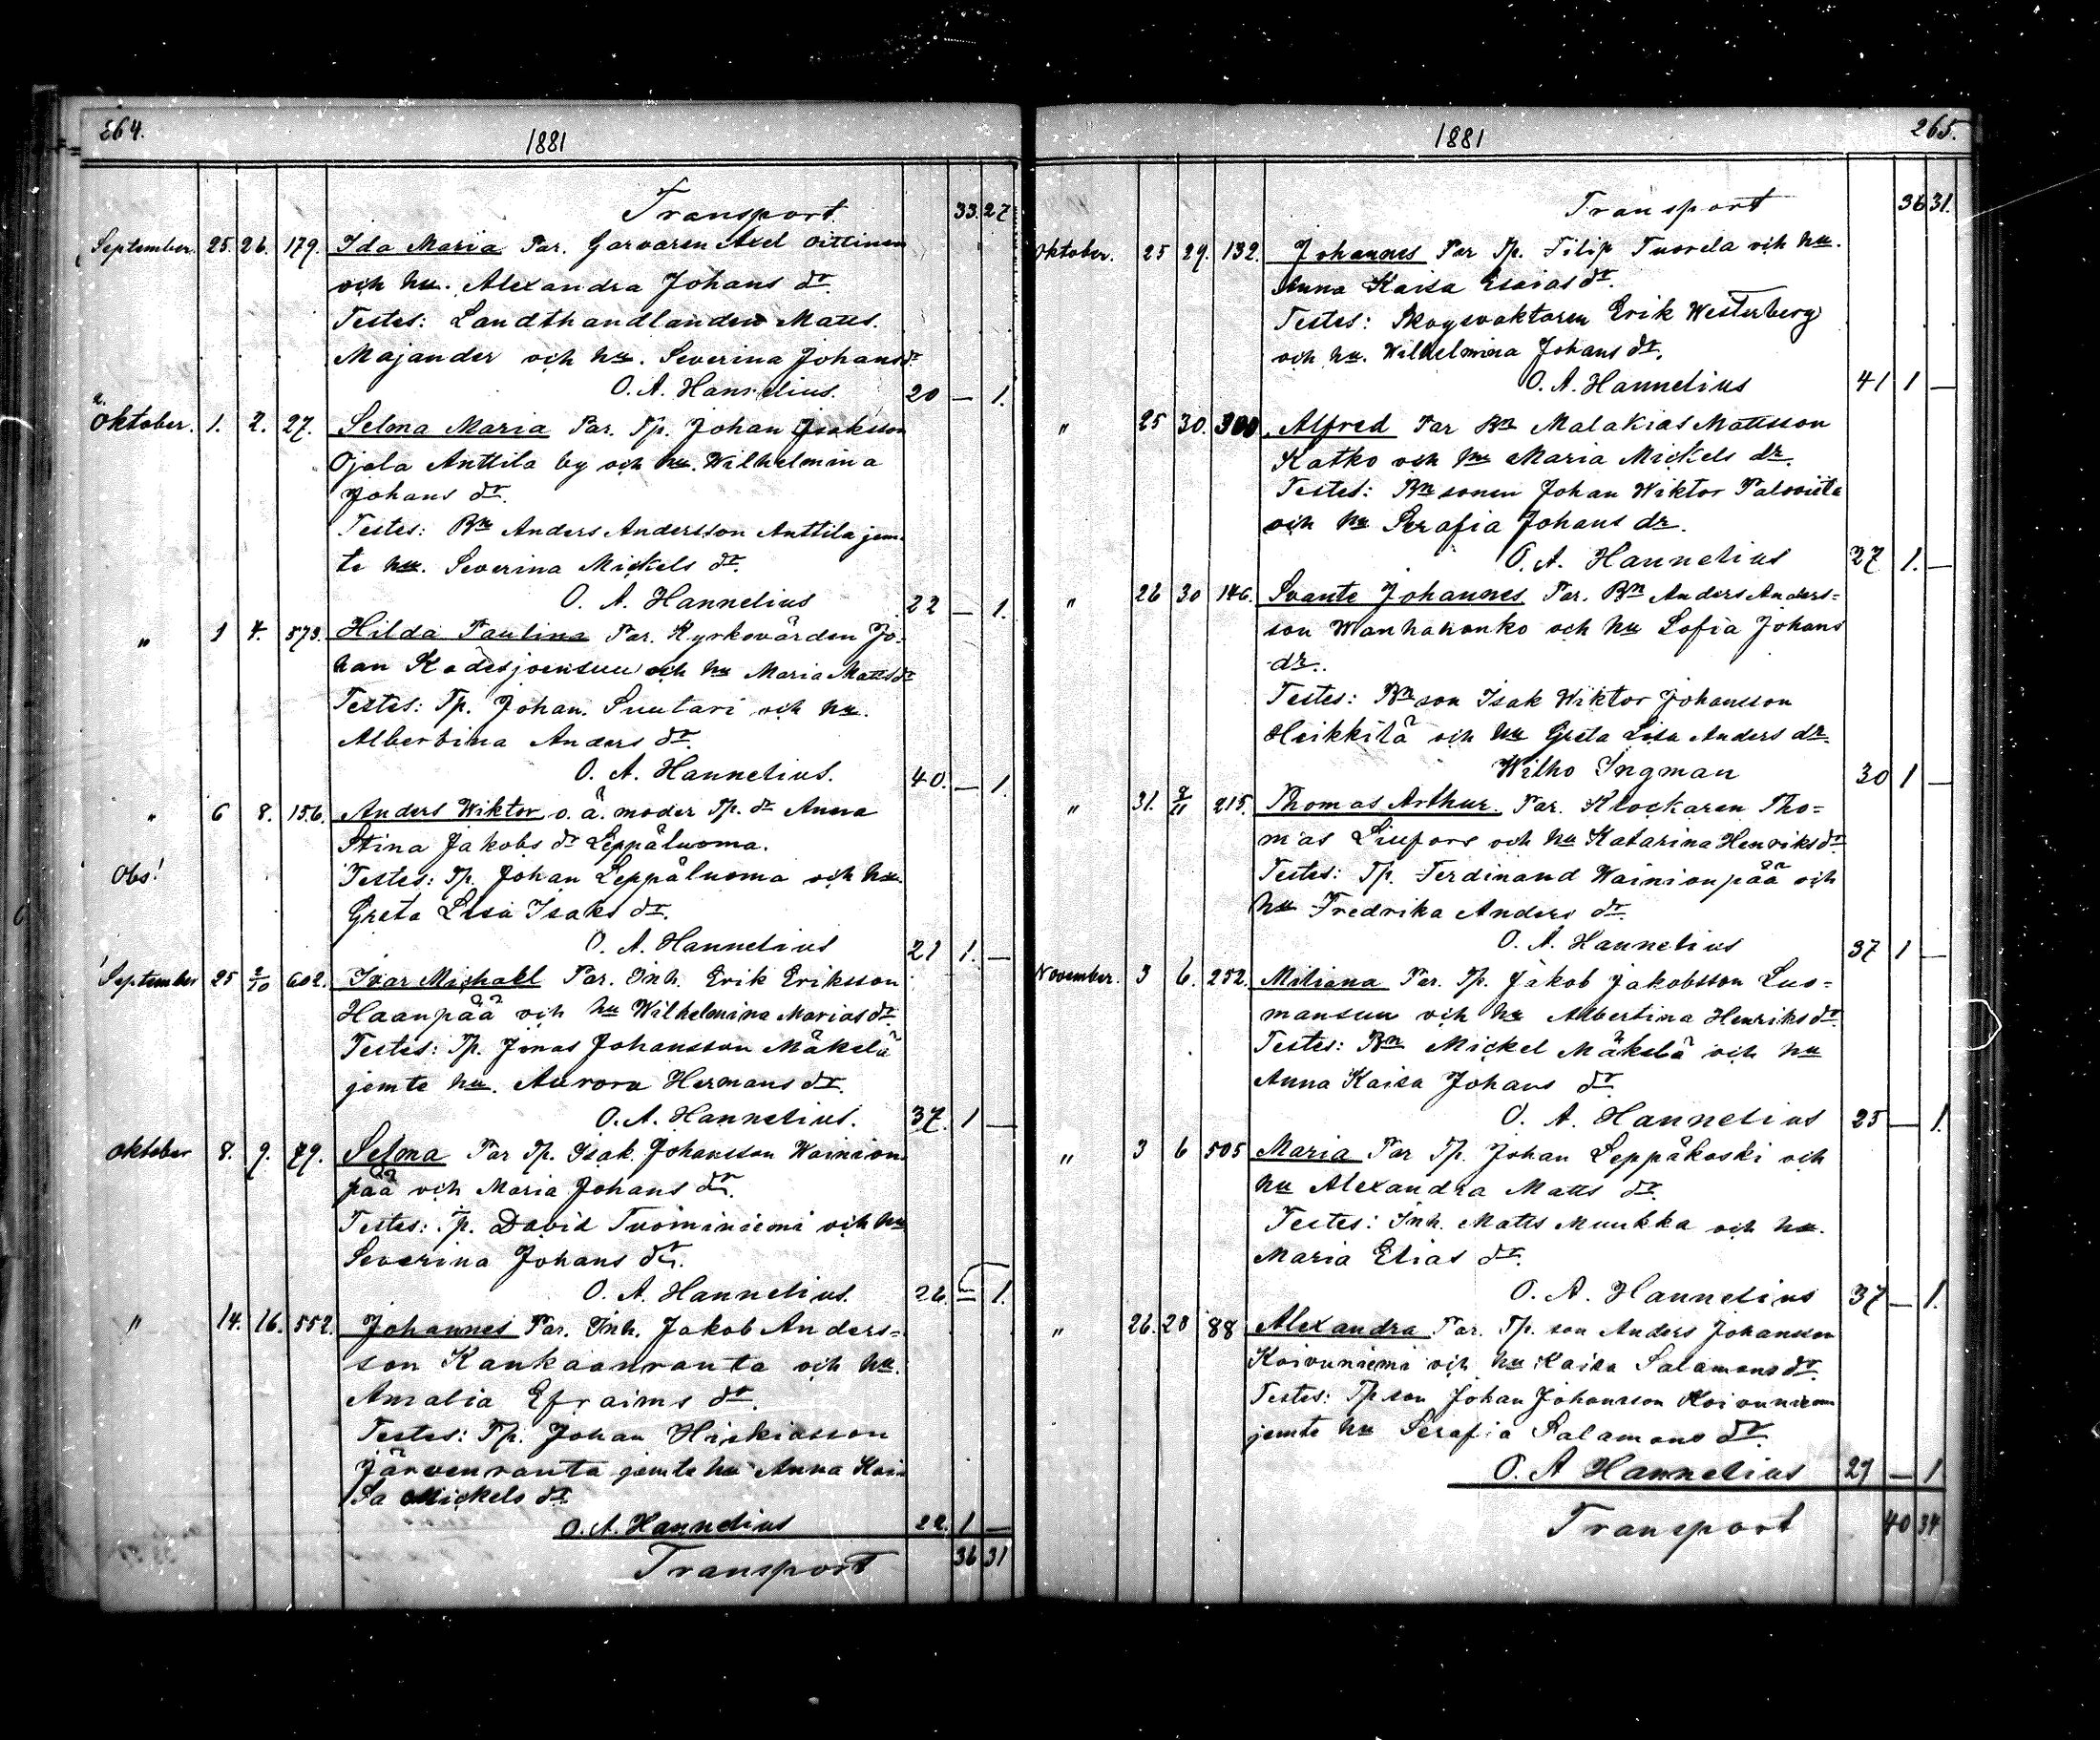 264.
1881
Transport. 33. 27
September. 25. 26. 179. Ida Maria Par. Garvaren Axel Oittinen
och hu. Alexandra Johans dr.
Testes: Landthandlanden Matts.
Majander och hu. Severina Johans dr
O. A. Hannelius. 20 — 1.
Oktober. 1. 2. 27. Selma Maria Par. Tp. Johan Isaksson
Ojala Anttila by och hu. Wilhelmina
Johans dr.
Testes: Bn Anders Andersson Anttila jem-
te hu. Severina Mickels dr.
O. A. Hannelius 22 — 1.
" 3 4. 573. Hilda Paulina Par. Kyrkovärden Jo-
han Kadesjoensuu och hu Maria Matts dr
Testes: Tp. Johan. Suutari och hu.
Albertina Anders dr.
O. A. Hannelius. 40. — 1.
" 6 8. 156. Anders Wiktor o. ä. moder Tp. dr Anna
Stina Jakobs dr Leppäluoma.
Obs! Testes: Tp. Johan Leppäluoma och hu.
Greta Lisa Isaks dr.
O. A. Hannelius 21 1. —
September 25 2/10 602. Ivar Michael Par. Inh. Erik Eriksson
Haanpää och hu Wilhelmina Marias dr.
Testes: Tp. Jonas Johansson Mäkelä
jemte hu. Aurora Hermans dr.
O. A. Hannelius. 37. 1 —
Oktober 8. 9. 79. Selma Par Tp. Isak Johansson Wainion-
pää och Maria Johans dr.
Testes: Tp. David Tuominiemi och hu
Severina Johans dr.
O. A. Hannelius. 26. — 1.
" 14. 16. 552. Johannes Par. Inh. Jakob Anders=
son Kankaanranta och hu.
Amalia Efraims dr.
Testes: Tp. Johan Hiskiasson
Järvenranta jemte hu Anna Kai-
sa Mickels dr
O. A. Hannelius 22. 1 —
Transport 36 31
265.
1881
Transport 36 31.
Oktober. 25 29. 132. Johannes Par Tp. Filip Tuorela och hu.
Anna Kaisa Esaias dr.
Testes: Skogvaktaren Erik Westerberg
och hu. Wilhelmina Johans dr.
O. A. Hannelius 41 1 —
" 25 30. 300. Alfred Par Bn Malakias Mattsson
Katko och hu Maria Mickels dr.
Testes: Bn sonen Johan Wiktor Paloviita
och hu Serafia Johans dr.
O. A. Hannelius 27 1. —
" 26 30 146. Svante Johannes Par. Bn Anders Anders=
son Wanhahonko och hu Sofia Johans
dr.
Testes: Bn son Isak Wiktor Johansson
Heikkilä och hu Greta Lisa Anders dr.
Wilho Ingman 30 1 —
" 31. 2/11 215. Thomas Arthur. Par. Klockaren Tho=
mas Liufors och hu Katarina Henriks dr.
Testes: Tp. Ferdinand Wainionpää och
hu Fredrika Anders dr.
O. A. Hannelius 37 1 —
November. 3 6. 252. Miliana Par. Tp. Jakob Jakobsson Luo=
mansuu och hu Albertina Henriks dr.
Testes: Bn Mickel Mäkelä och hu
Anna Kaisa Johans dr
O. A. Hannelius 25 — 1.
" 3 6 505 Maria Par Tp. Johan Leppäkoski och
hu Alexandra Matts dr.
Testes: Inh. Matts Muukka och hu.
Maria Elias dr.
O. A. Hannelius 37 — 1.
" 26. 28 88 Alexandra Par. Tp. son Anders Johansson
Koivuniemi och hu Kaisa Salamons dr.
Testes: Tp son Johan Johansson Koivuniemi
jemte hu Serafia Salamons dr.
O. A Hannelius 29 — 1
Transport 40 34